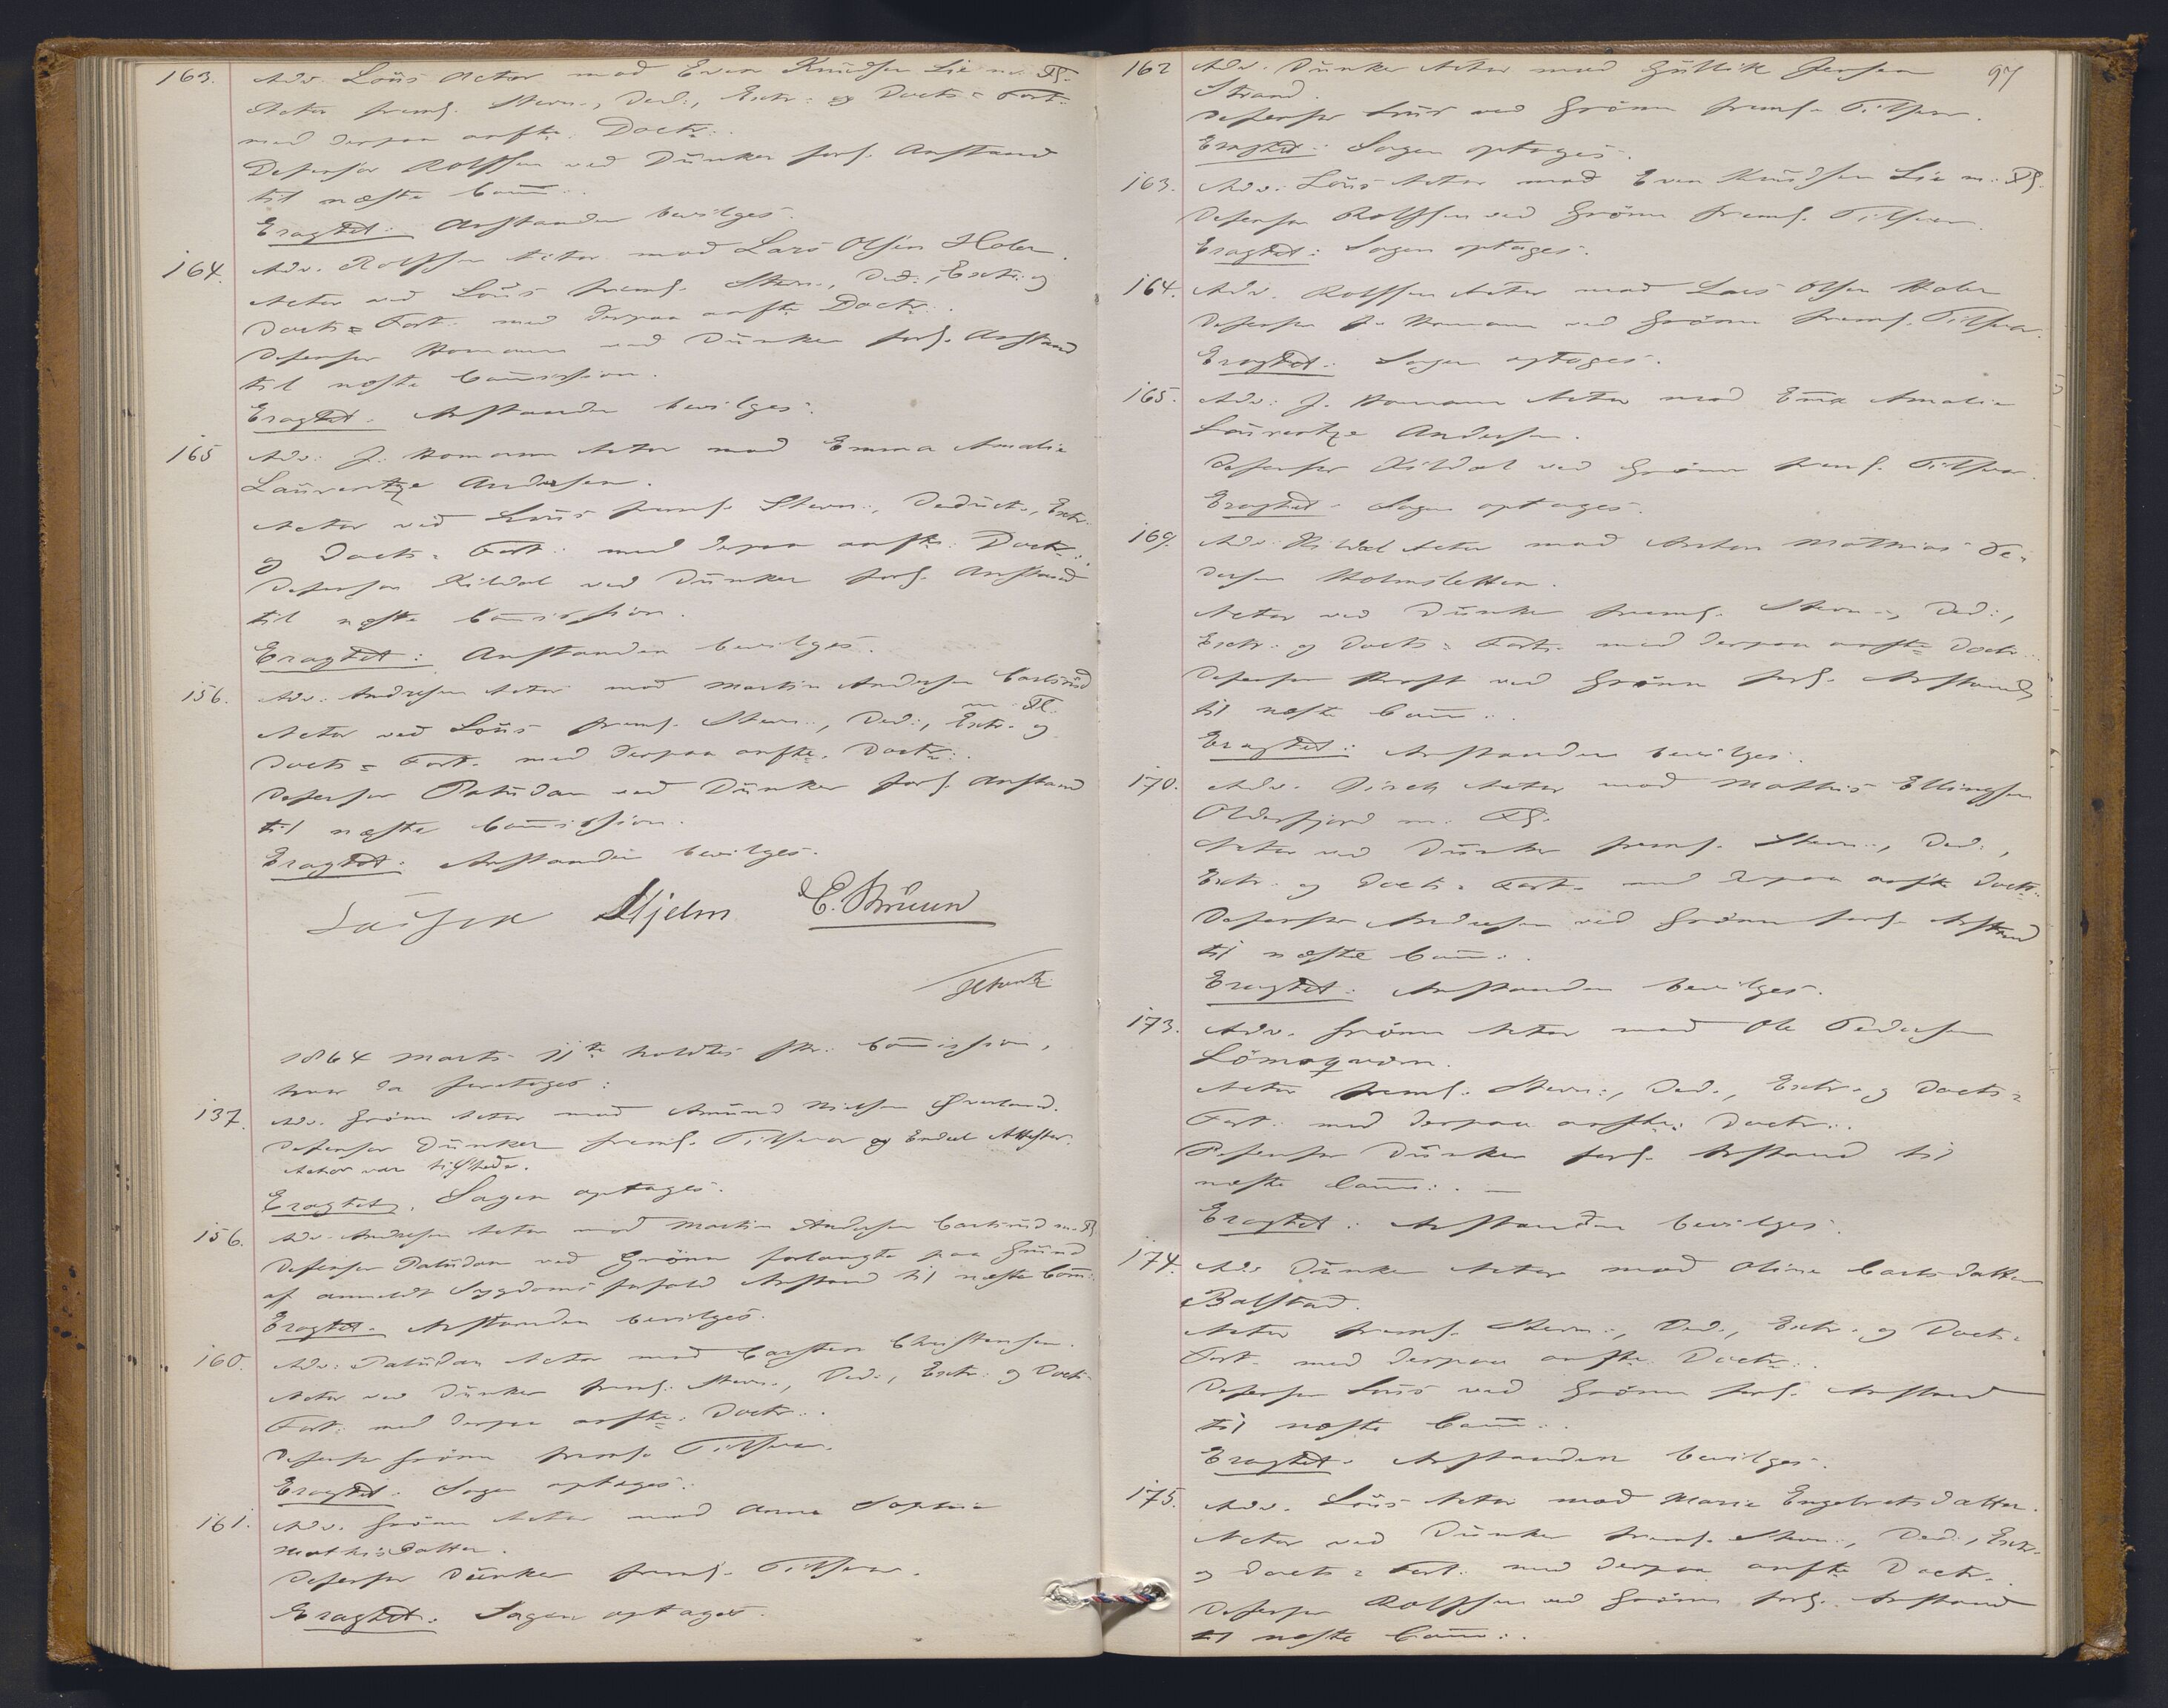 163. Adv. Lous Actor mod Even Knudsen Lie m. Fl.
Actor freml. Stevn:, Ded:, Extr: og Docts= Fort:
med derpaa anfte. Doctr:.
Defensor Rolffsen ved Dunker forl. Anstand
til næste Comm:.
Eragtet: Anstanden bevilges.
164. Adv. Rolffsen Actor mod Lars Olsen Holen.
Actor ved Lous freml. Stevn:, Ded:, Extr: og
Docts= Fort. med derpaa anfte Doctr:.
Defensor Homann ved Dunker forl. Anstand
til næste Commission.
Eragtet. Anstanden bevilges.
165 Adv: J. Homann Actor mod Emma Amalie
Laurentze Andersen.
Actor ved Lous freml. Stevn:, Deduct:, Extr:
og Docts= Fort: med derpaa anfte: Doctr:.
Defensor Kildal ved Dunker forl. Anstand
til næste Commission.
Eragtet: Anstanden bevilges.
156. Adv: Andresen Actor mod Martin Andersen Carlsrud
m Fl.
Actor ved Lous freml. Stevn:, Ded:, Extr. og
Docts= Fort. med derpaa anfte. Doctr:.
Defensor Paludan ved Dunker forl. Anstand
til næste Commission.
Eragtet: Anstanden bevilges.
Lasson Hjelm E. Bruun
1864 Marts 11te holdtes Commission,
hvor da foretoges:
137. Adv. Grönn Actor mod Amund Nielsen Qverland.
Defensor Dunker freml. Tilsvar og Attester.
Actor var tilstede.
Eragtet, Sagen optages.
156. Adv. Andresen Actor mod Martin Andersen Carlsrud m. Fl.
Defensor Paludan ved Grönn forlangte paa Grund
af anmeldt Sygdoms forfald Anstand til næste Comm:
Eragtet. Anstanden bevilges.
160. Adv: Paludan Actor mod Carsten Christensen.
Actor ved Dunker freml. Stevn:, Ded:, Extr: og Docts=
Fort: med derpaa anfte: Doctr:.
Defensor Grönn freml. Tilsvar.
Eragtet. Sagen optages.
161. Adv. Grönn Actor mod Anna Sophie
Mathisdatter.
Defensor Dunker freml. Tilsvar.
Eragtet. Sagen optages.
97
162 Adv. Dunker Actor mod Gullik Jensen
Strand.
Defensor Lous ved Grönn freml. Tilsvar.
Eragtet: Sagen optages.
163. Adv. Lous Actor mod Even Knudsen Lie m. Fl.
Defensor Rolffsen ved Grönn freml. Tilsvar.
Eragtet: Sagen optages.
164. Adv. Rolffsen Actor mod Lars Olsen Holen
Defensor J. Homann ved Grönn freml. Tilsvar.
Eragtet: Sagen optages.
165. Adv: J. Homann Actor mod Emma Amalie
Laurentze Andersen.
Defensor Kildal ved Grönn freml. Tilsvar.
Eragtet. Sagen optages.
169. Adv: Kildal Actor mod Anton Mathias Pe=
dersen Holmsletten.
Actor ved Dunker freml. Stevn:, Ded:,
Extr. og Docts= Fort. med derpaa anfte Doctr:.
Defensor Kraft ved Grönn forl. Anstand
til næste Comm:.
Eragtet: Anstanden bevilges.
170. Adv. Birch Actor mod Mathis Ellingsen
Olderfjord m. Fl.
Actor ved Dunker freml. Stevn:, Ded:,
Extr. og Docts= Fort. med derpaa anfte Doctr:.
Defensor Andresen ved Grönn forl. Anstand
til næste Comm:.
Eragtet: Anstanden bevilges.
173. Adv. Grönn Actor mod Ole Pedersen
Lömoqværn.
Actor freml. Stevn:, Ded., Extr. og Docts=
Fort. med derpaa anfte: Doctr:.
Defensor Dunker forl. Anstand til
næste Comm:. —
Eragtet: Anstanden bevilges.
174. Adv Dunker Actor mod Oline Carlsdatter
Balstad.
Actor freml. Stevn:, Ded., Extr. og Docts=
Fort. med derpaa anfte. Doctr:.
Defensor Lous ved Grönn forl. Anstand
til næste Comm:.
Eragtet. Anstanden bevilges.
175. Adv. Lous Actor mod Marie Engebretsdatter.
Actor ved Dunker freml. Stevn:, Ded:, Extr.
og Docts= Fort. med derpaa anfte Doctr:.
Defensor Rolffsen ved Grönn forl. Anstand
til næste Comm:.